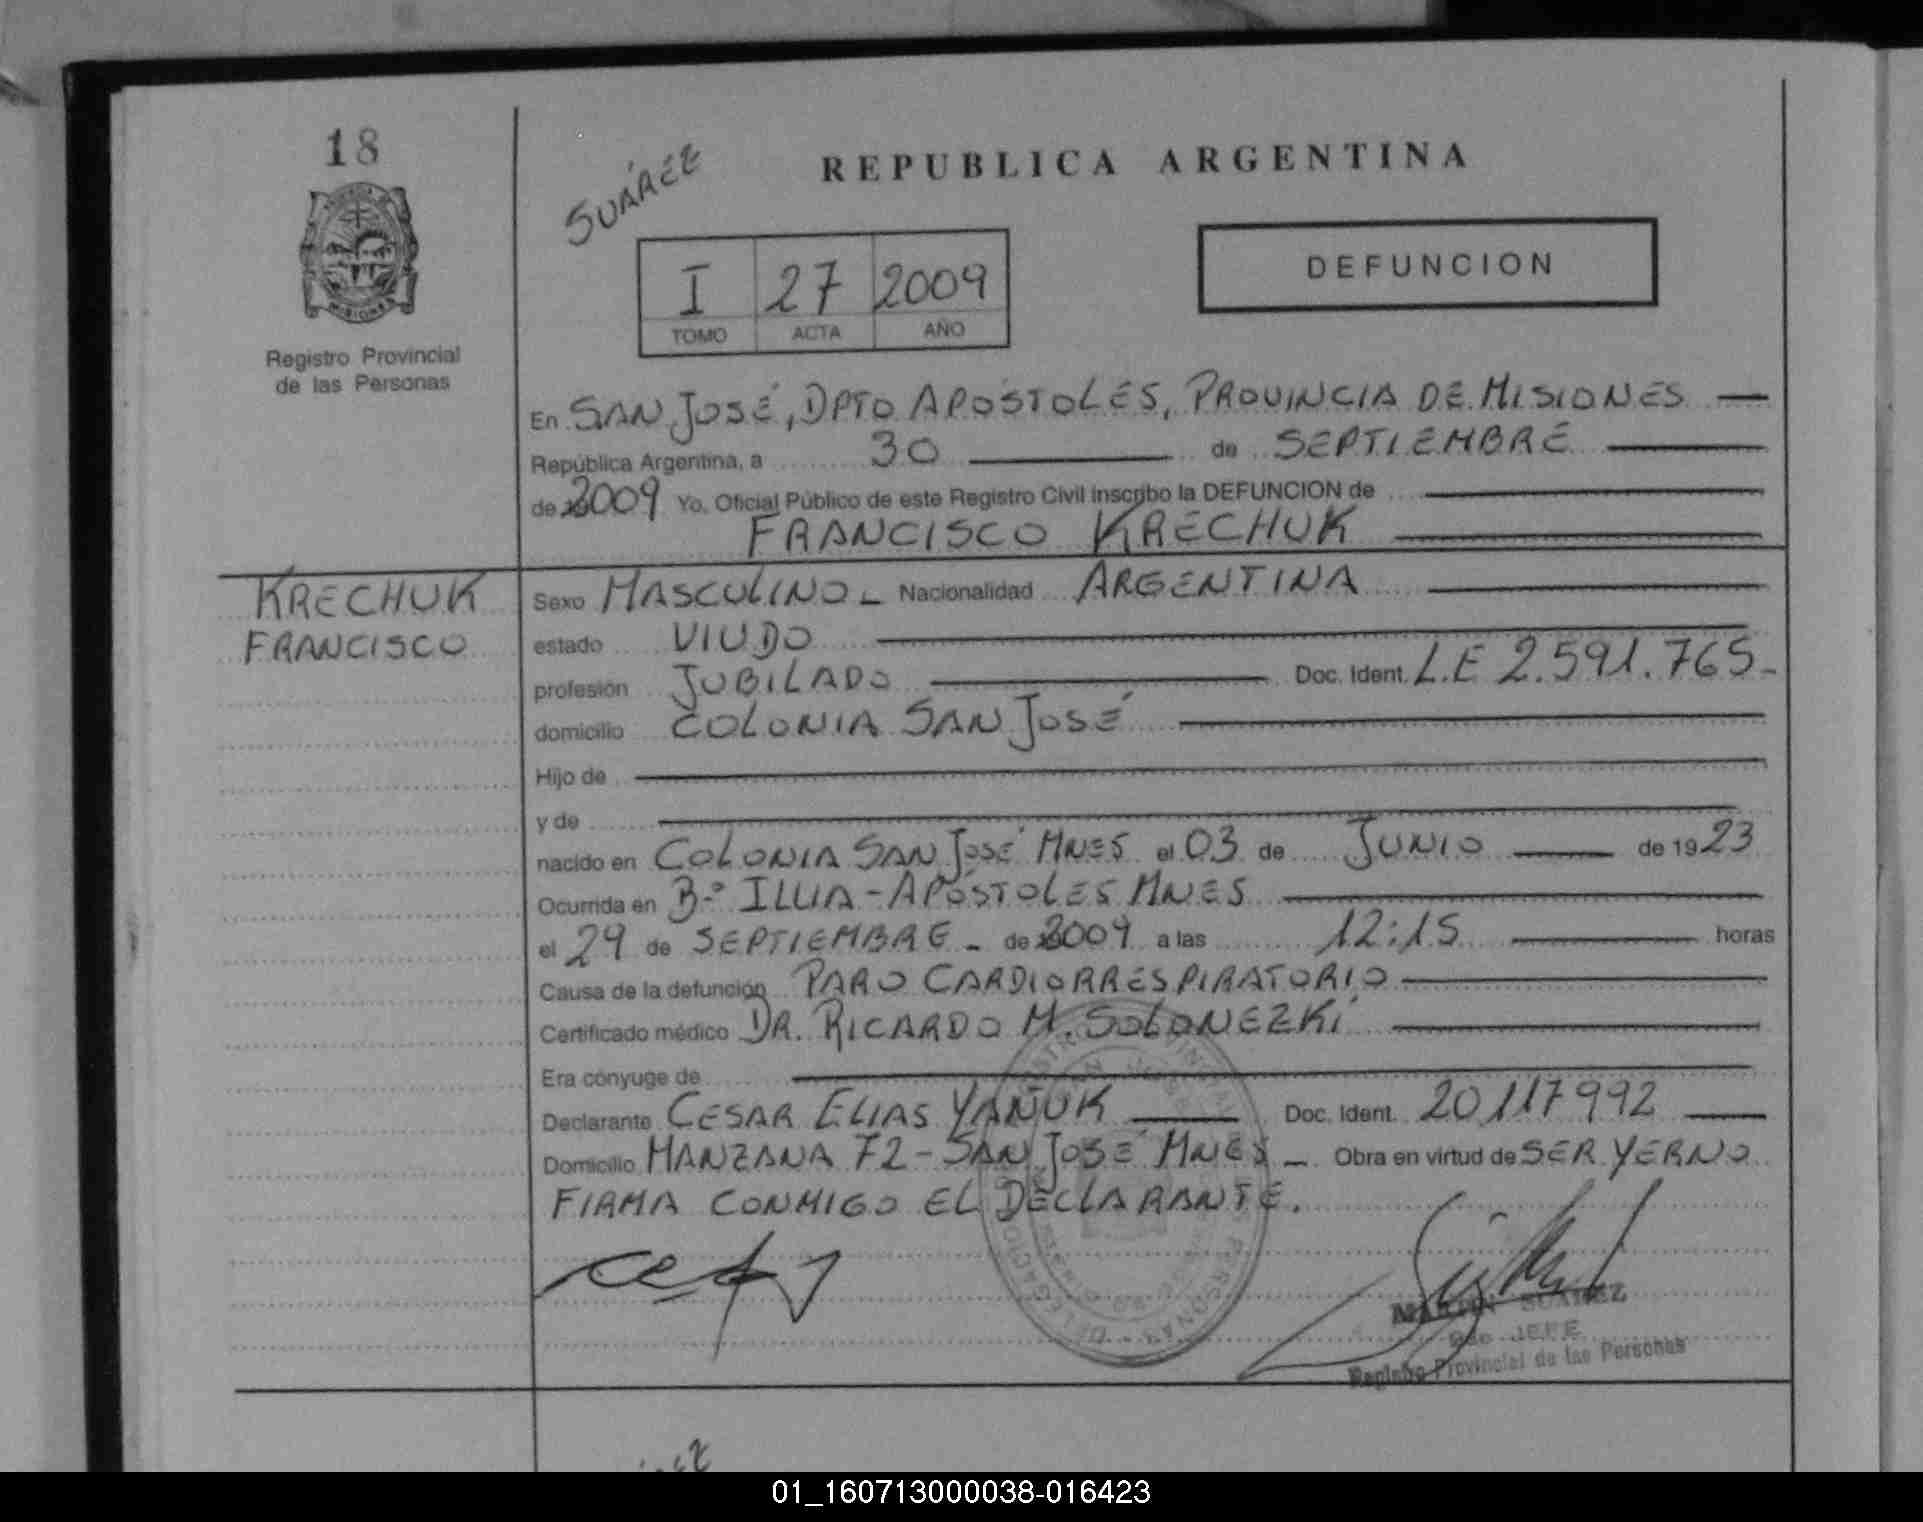 18
MISIONES
Registro Provincial
de las Personas
SUÁREZ
REPUBLICA ARGENTINA
I 27 2009
TOMO ACTA AÑO
DEFUNCION
En SAN JOSÉ, DPTO APOSTOLES, PROVINCIA DE MISIONES
República Argentina, a 30 de SEPTIEMBRE
de 2009 Yo, Oficial Público de este Registro Civil inscribo la DEFUNCION de
FRANCISCO KRECHUK
KRECHUK
FRANCISCO
Sexo MASCULINO - Nacionalidad ARGENTINA
estado VIUDO
profesión JUBILADO Doc. Ident. L.E 2.591.765-
domicilio COLONIA SAN JOSÉ
Hijo de
y de
nacido en COLONIA SAN JOSÉ MNES el 03 de JUNIO de 1923
Ocurrida en Bº ILLIA - APÓSTOLES MNES
el 29 de SEPTIEMBRE - de 2009 a las 12:15 horas
Causa de la defunción PARO CARDIORRESPIRATORIO
Certificado médico DR. RICARDO M. SOLONEZKI
Era cónyuge de
Declarante CESAR ELIAS YAÑUK Doc. Ident. 20117992
Domicilio MANZANA 72 - SAN JOSÉ MNES - Obra en virtud de SER YERNO
FIRMA CONMIGO EL DECLARANTE.
MARTIN SUAREZ
JEFE
Registro Provincial de las Personas
01_160713000038-016423